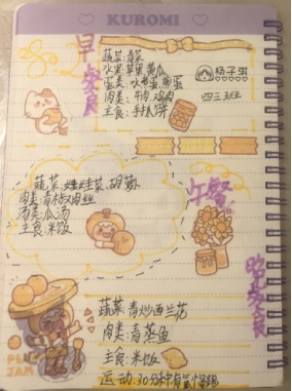 KUROMI
早餐
蔬菜:青菜
水果:苹果 黄瓜
蛋类:水煮蛋
肉类:牛肉 鸡肉
主食:手抓饼
杨子淇
四三班
午餐
蔬菜:娃娃菜、胡萝卜
肉类:青椒肉丝
汤类:瓜汤
主食:米饭
晚餐
蔬菜:青炒西兰花
肉类:清蒸鱼
主食:米饭
运动:30分钟有氧慢跑
JAM